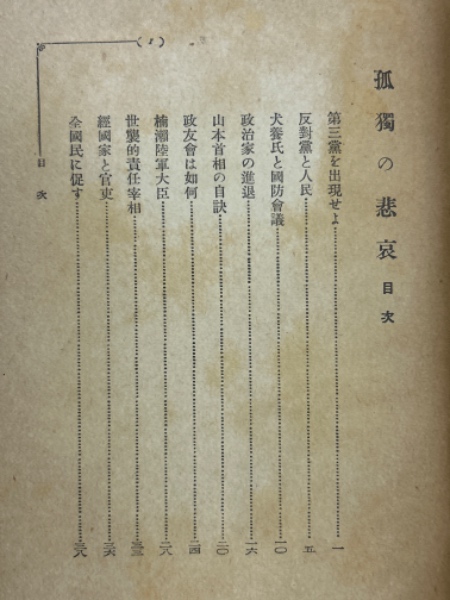 孤獨の悲哀 目次
第三黨を出現せよ……一
反對黨と人民……五
犬養氏と國防會議……一〇
政治家の進退……一六
山本首相の自訣……二〇
政友會は如何……二四
楠瀬陸軍大臣……二八
世襲的責任宰相……三三
經國家と官吏……三六
全國民に促す……三八
目次
(1)